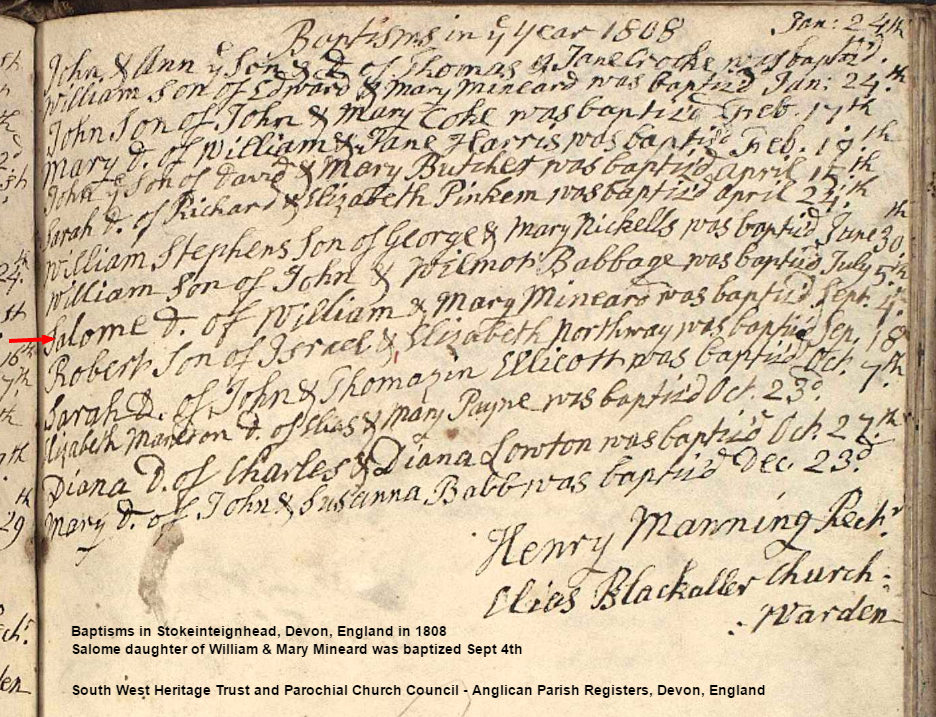 Baptisms in ye Year 1808
Jan: 24th
John, & Ann ye Son & D. of Thomas & Jane Crocke was baptiz'd.
William Son of Edward & Mary Mineard was baptiz'd Jan: 24th
John Son of John & Mary Coke was baptiz'd Feb. 17th
Mary d. of William & Jane Harris was baptiz'd Feb. 19th
John ye Son of David & Mary Butcher was baptiz'd april 15th
Sarah d. of Richard & Elizabeth Pinkem was baptiz'd april 24th
William Stephens Son of George & Mary Nickells was baptiz'd June 30th
William Son of John & Wilmot Babbage was baptiz'd July 5th
Salome d. of William & Mary Mineard was baptiz'd Sept. 4th
Robert Son of Israel & Elizabeth Northway was baptiz'd Sep. 18
Sarah D. of John & Thomazin Ellicott was baptiz'd Oct. 7th
Elizabeth d. of Elias & Mary Payne was baptiz'd Oct. 23d
Diana D. of Charles & Diana Lowton was baptiz'd Oct. 27th
Mary d. of John & Susanna Babb was baptiz'd Dec. 23d
Henry Manning Rectr
Elias Blackaller Church:
Warden
Baptisms in Stokeinteignhead, Devon, England in 1808
Salome daughter of William & Mary Mineard was baptized Sept 4th
South West Heritage Trust and Parochial Church Council - Anglican Parish Registers, Devon, England